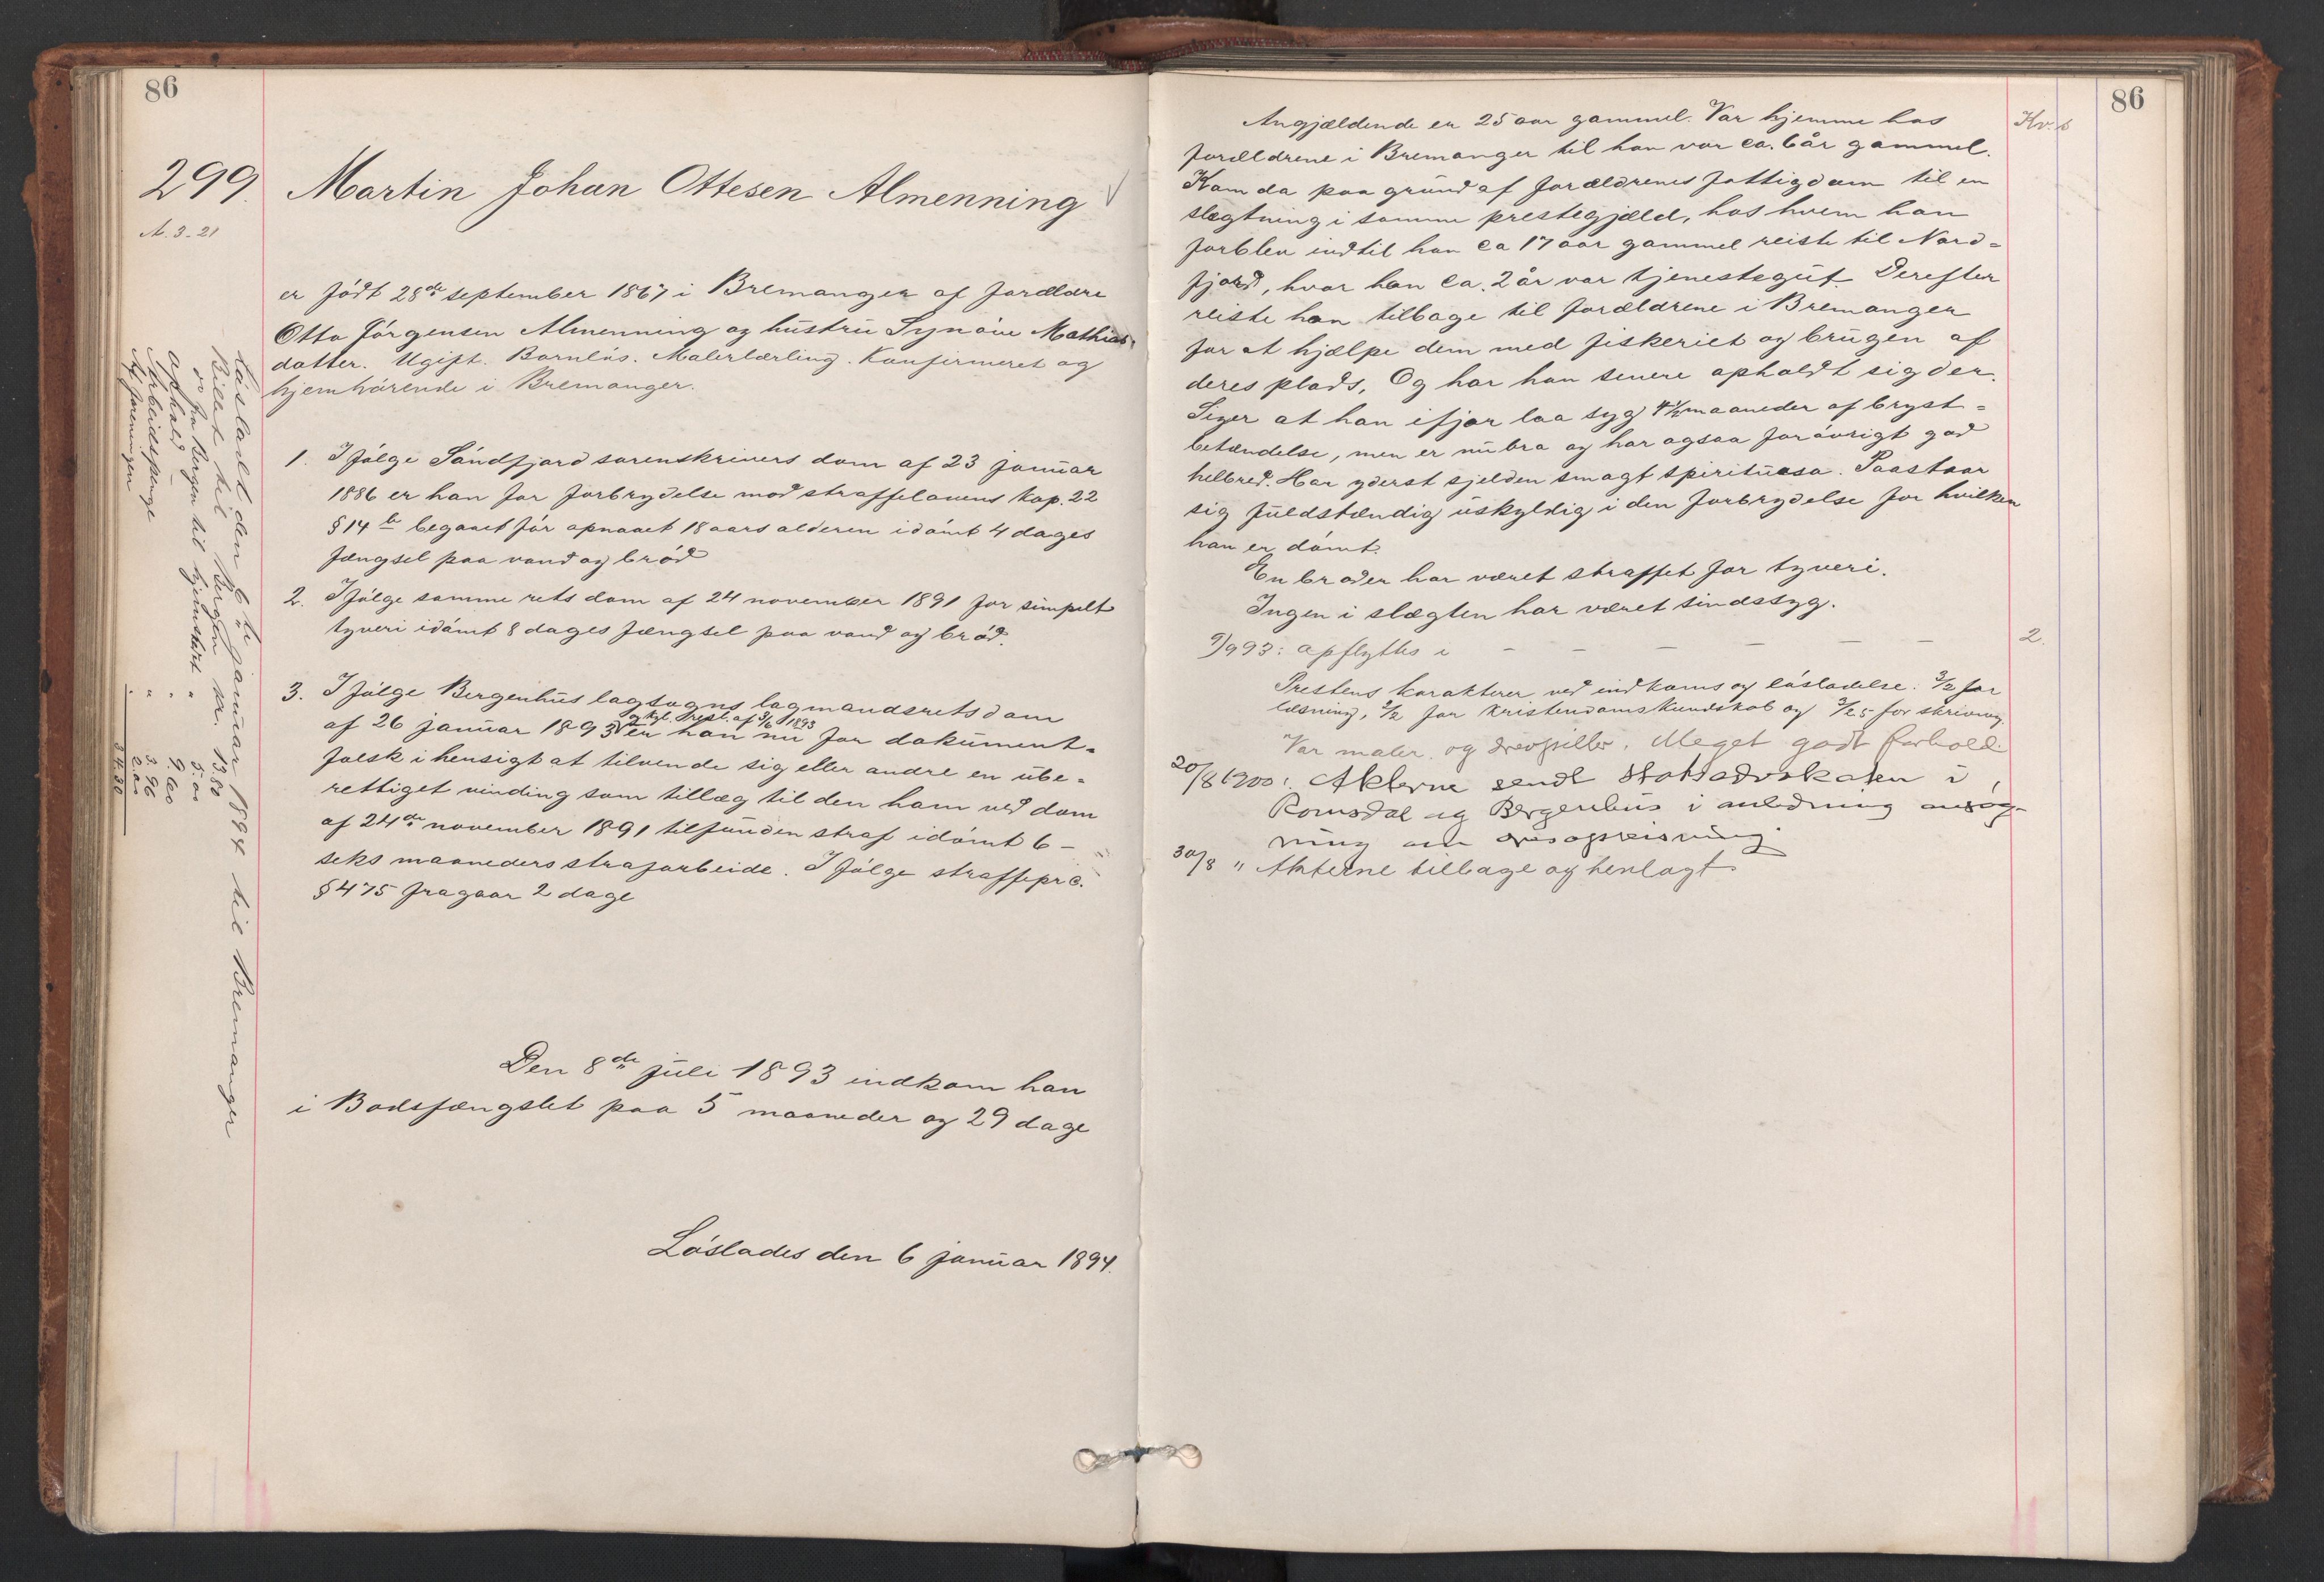 86
299.
A. 3-21
Martin Johan Ottesen Almenning
er født 28de september 1867 i Bremanger af forældre
Otto Jørgensen Almenning og hustru Synøve Mathias-
datter. Ugift. Barnløs. Malerlærling. Konfirmeret og
hjemhørende i Bremanger.
1. Ifølge Søndfjord sorenskrivers dom af 23 januar
1886 er han for forbrydelse mod straffelovens kap. 22
§ 14 begaaet før opnaaet 18 aars alderen idømt 4 dages
fængsel paa vand og brød
2. Ifølge samme rets dom af 24 november 1891 for simpelt
tyveri idømt 8 dages fængsel paa vand og brød.
3. Ifølge Bergenhus lagsogns lagmandsrets dom
af 26 januar 1893 og kgl. resl. af 9/6 1893 er han nu for dokument-
falsk i hensigt at tilvende sig eller andre en ube-
rettiget vinding som tillæg til den ham ved dom
af 24de november 1891 tilfunden straf idømt 6 -
seks maaneders strafarbeide. Ifølge straffeprc.
§ 475 fragaar 2 dage
Den 8de juli 1893 indkom han
i Bodsfængslet paa 5 maaneder og 29 dage
Løslades den 6 januar 1894.
Løsladt den 6te januar 1894 til Bremanger
Billet til Bergen kr. 13.80
do fra Bergen til hjemstedet " 5.00
Ophold " 9.60
Arbeidspenge " 3.96
Af foreningen 2.00
34.30
86
Angjældende er 25 aar gammel. Var hjemme hos
forældrene i Bremanger til han var ca. 6 år gammel.
Kom da paa grund af forældrenes fattigdom til en
slægtning i samme prestegjæld, hos hvem han
forblev indtil han ca 17 aar gammel reiste til Nord-
fjord, hvor han ca. 2 år var tjenestegut. Derefter
reiste han tilbage til forældrene i Bremanger
for at hjælpe dem med fiskeriet og brugen af
deres plads, Og har han senere opholdt sig der.
Siger at han ifjor laa syg 4 1/2 maaneder af bryst-
betændelse, men er nu bra og har ogsaa forøvrigt god
helbred. Har yderst sjelden smagt spirituosa. Paastaar
sig fuldstændig uskyldig i den forbrydelse for hvilken
han er dømt.
En broder har været straffet for tyveri.
Ingen i slægten har været sindssyg.
9/9 93: opflyttes i - - - - - 2.
Prestens karakterer ved indkomst og løsladelse: 3/2 for
læsning, 2/2 for kristendomskundskab og 3/2.5 for skrivning.
Var maler og drevpiller. Meget godt forhold.
20/8 1900: Akterne sendt statsadvokaten i
Romsdal og Bergenhus i anledning ansøg-
ning om æresopreisning.
30/8 " Akterne tilbage og henlagt.